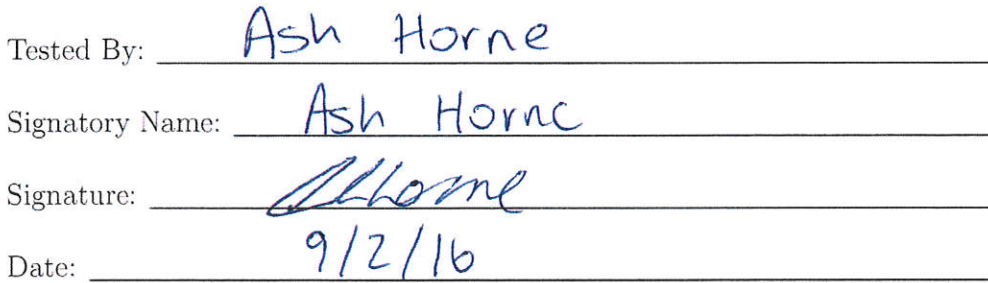 Tested By: Ash Horne
Signatory Name: Ash Horne
Signature: AHorne
Date: 9/2/16